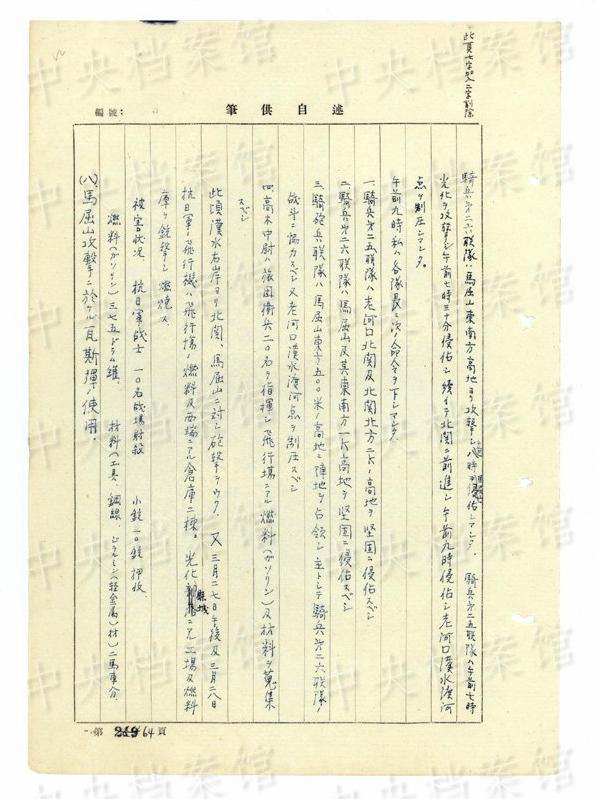 此頁七字加入二字削除
編號:
筆供自述
騎兵第二六联隊ハ馬屈山東南方高地ヨリ攻撃シ八時 侵佔シマシタ。騎兵第二五联隊ハ午前七時
光化ヲ攻撃シ午前七時三十分侵佔シ続イテ北関ニ前進シ午前九時侵佔シ老河口漢水渡河
点ヲ制圧シマシタ。
午前九時私ハ各隊長ニ次ノ命令ヲ下シマシタ。
一、騎兵第二五联隊ハ老河口北関及北関北方二K、高地ヲ堅固ニ侵佔スベシ
二、騎兵第二六联隊ハ馬屈山及其東南方一K高地ヲ堅固ニ侵佔スベシ
三、騎砲兵联隊ハ馬屈山東方五〇〇米ノ高地ニ陣地ヲ占領シ主トシテ騎兵第二六联隊ノ
战斗ニ協力スベシ又老河口漢水渡河点ヲ制圧スベシ
四、高木中尉ハ旅団衛兵二〇名ヲ指揮シ飛行場ニアル燃料(ガソリン)及材料ヲ蒐集
スベシ
此頃漢水右岸ヨリ北関、馬屈山ニ対シ砲撃ヲウク、又三月二七日午後及三月二八日
抗日軍ノ飛行機ハ飛行場ノ燃料及西端ニアル倉庫二棟。光化縣城ニアル工場及燃料
庫ヲ銃撃シ燃焼ス
被害状况 抗日軍战士 一〇名战場射殺 小銃一〇銃押收
燃料(ガソリン)三七五ドラム罐、材料(工具、鋼線、ジュラルミン(軽金属)材)二馬車分、
(八)馬屈山攻撃ニ於ケル瓦斯弾ノ使用。
第 64頁
中央档案馆